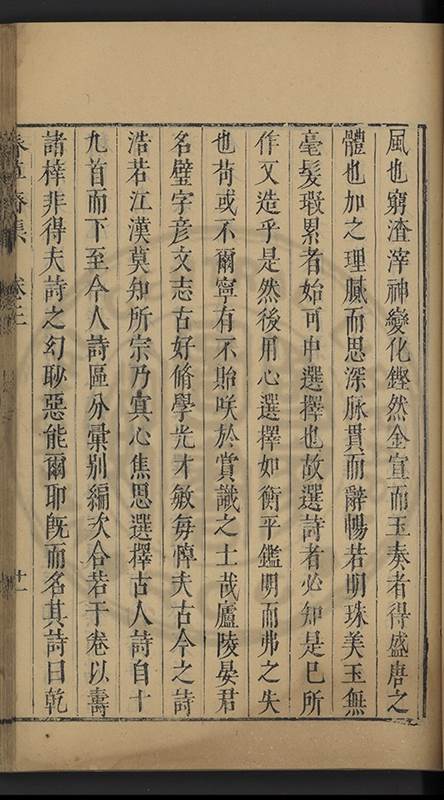 風也窮渣滓神變化鏗然金宣而玉奏者得盛唐之
體也加之理膩而思深脉貫而辭暢若明珠美玉無
毫髮瑕累者始可中選擇也故選詩者必知是已所
作又造乎是然後用心選擇如衡平鑑明而弗之失
也苟或不爾寧有不貽咲於賞識之士哉廬陵晏君
名璧字彦文志古好脩學光才敏每悼夫古今之詩
浩若江漢莫知所宗乃寘心焦思選擇古人詩自十
九首而下至今人詩區分彙別編次合若干卷以壽
諸梓非得夫詩之幻眇惡能爾耶旣而名其詩曰乾
春草齋集 卷之二 十一